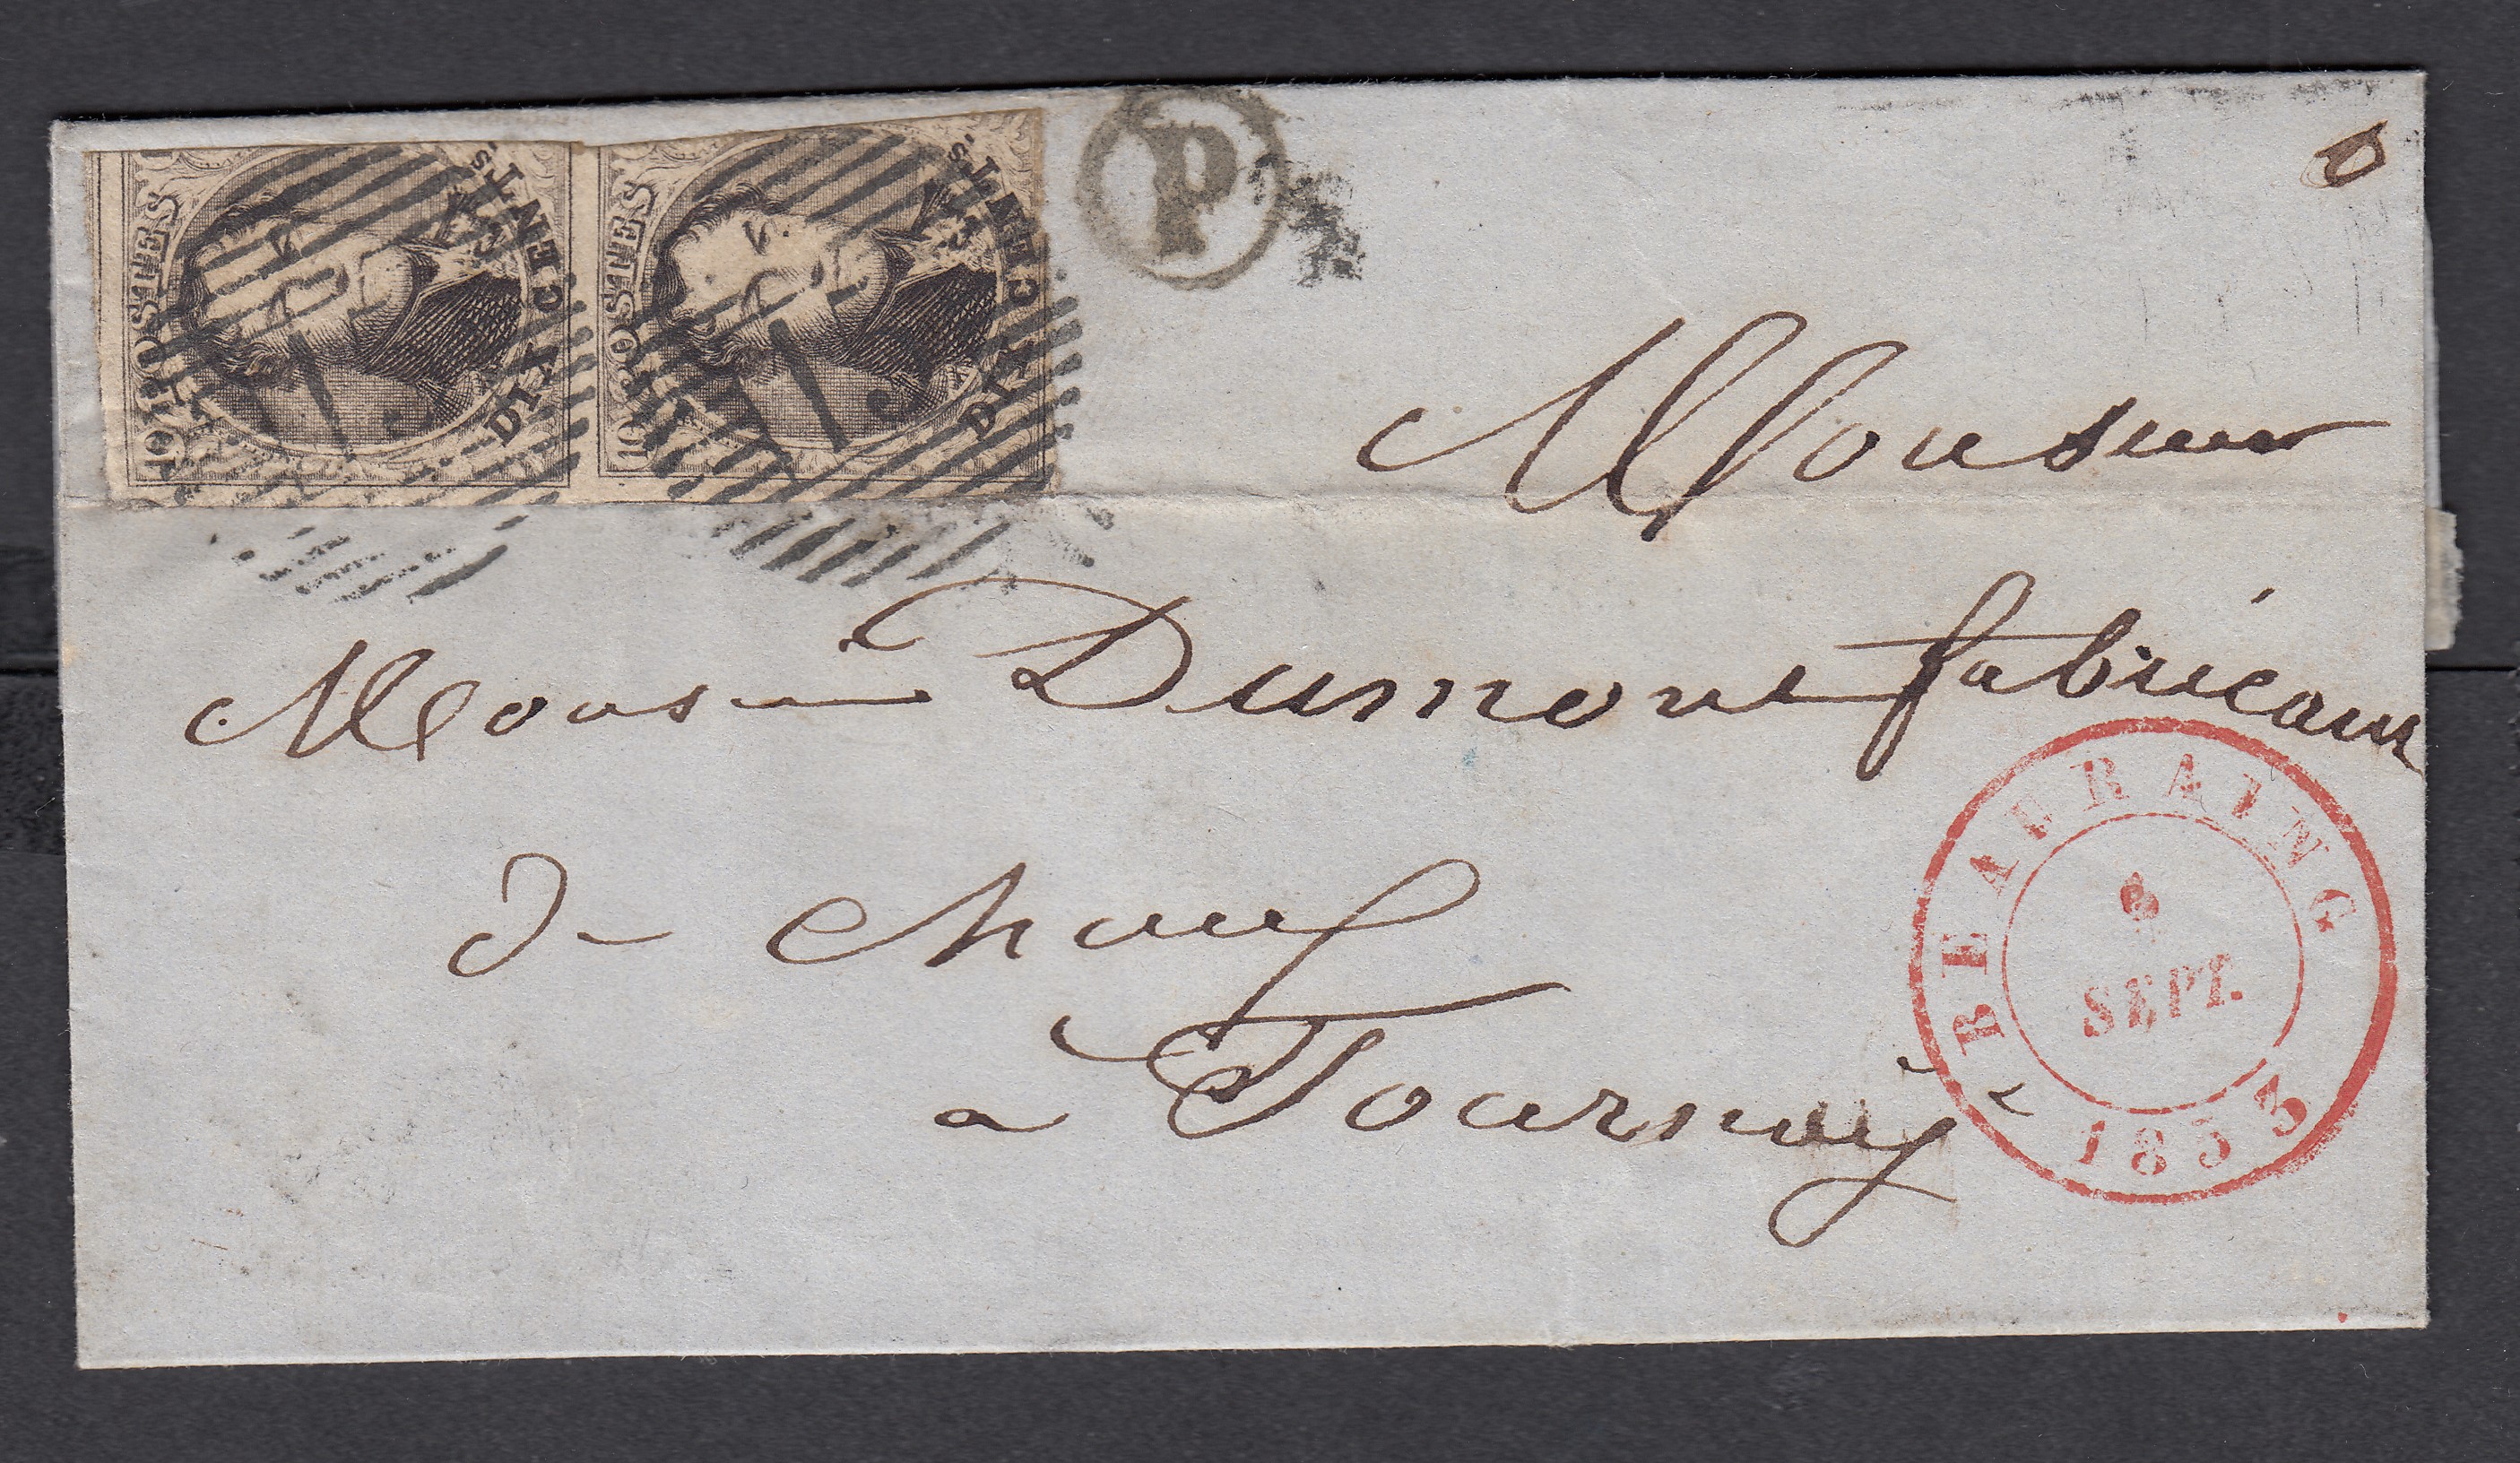 POSTES
10
DIX CENTS.
POSTES
10
DIX CENTS.
P
Monsieur
Monsieur Dumont fabricant
de chaux
à Tournay
BEAURAING
SEPT.
1853